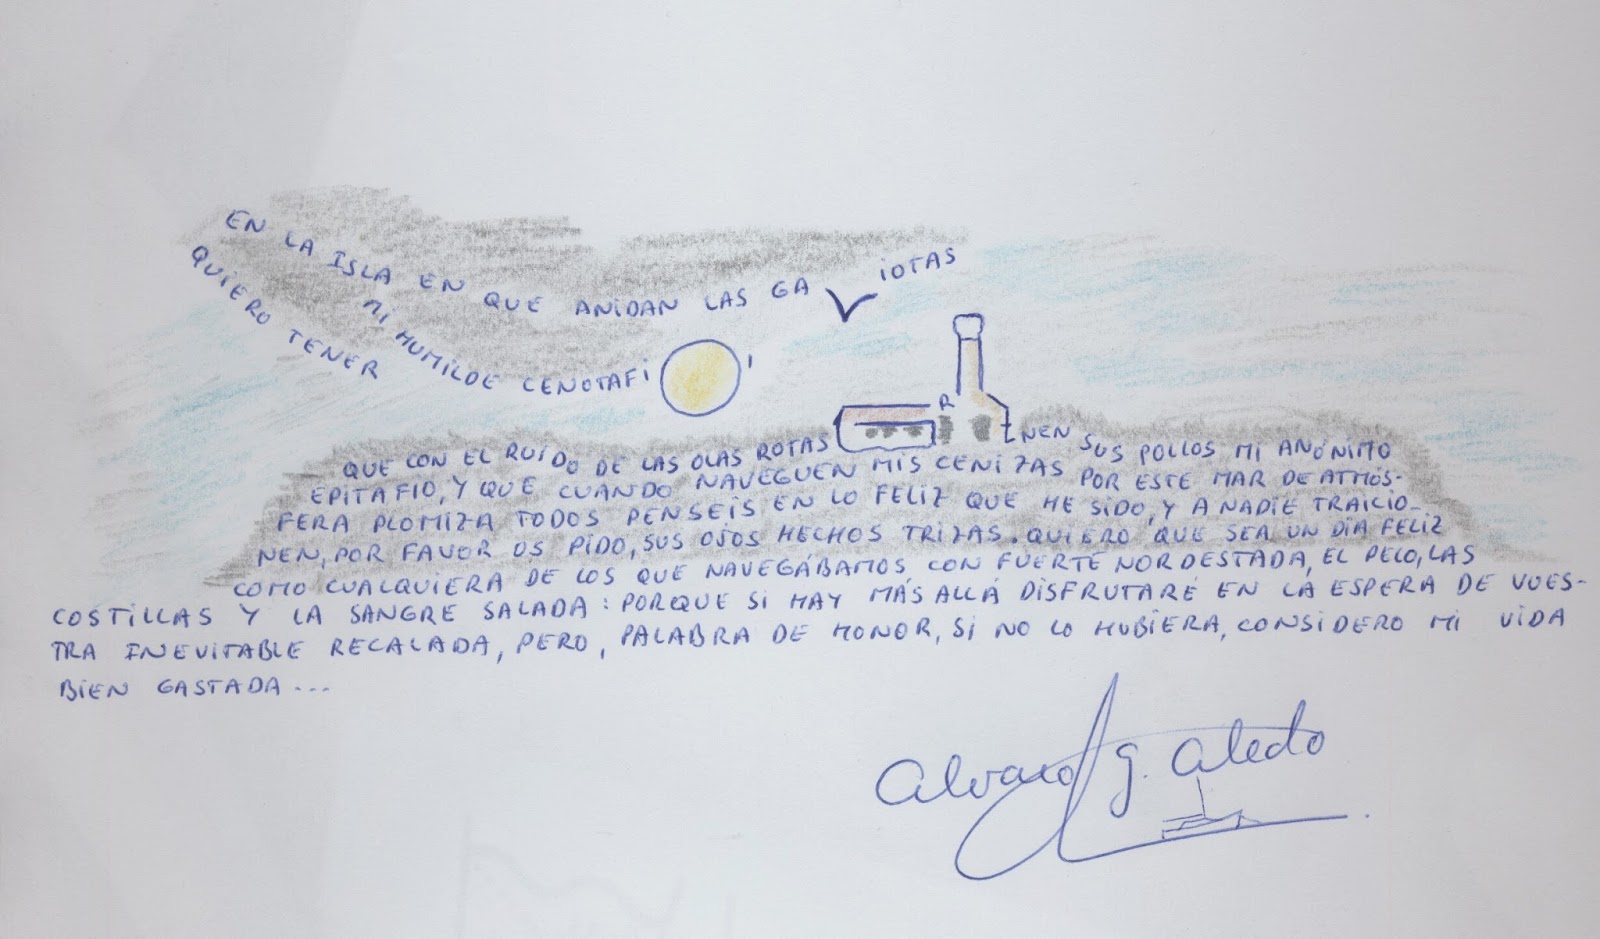 EN LA ISLA EN QUE ANIDAN LAS GAVIOTAS
QUIERO TENER
MI HUMILDE CENOTAFIO,
QUE CON EL RUIDO DE LAS OLAS ROTAS GRAZNEN SUS POLLOS MI ANÓNIMO
EPITAFIO, Y QUE CUANDO NAVEGUEN MIS CENIZAS POR ESTE MAR DE ATMÓS-
FERA PLOMIZA TODOS PENSEIS EN LO FELIZ QUE HE SIDO, Y A NADIE TRAICIO-
NEN, POR FAVOR OS PIDO, SUS OJOS HECHOS TRIZAS. QUIERO QUE SEA UN DÍA FELIZ
COMO CUALQUIERA DE LOS QUE NAVEGÁBAMOS CON FUERTE NORDESTADA, EL PELO, LAS
COSTILLAS Y LA SANGRE SALADA: PORQUE SI HAY MÁS ALLÁ DISFRUTARÉ EN LA ESPERA DE VUES-
TRA INEVITABLE RECALADA, PERO, PALABRA DE HONOR, SI NO LO HUBIERA, CONSIDERO MI VIDA
BIEN GASTADA...
Alvaro G. Aledo